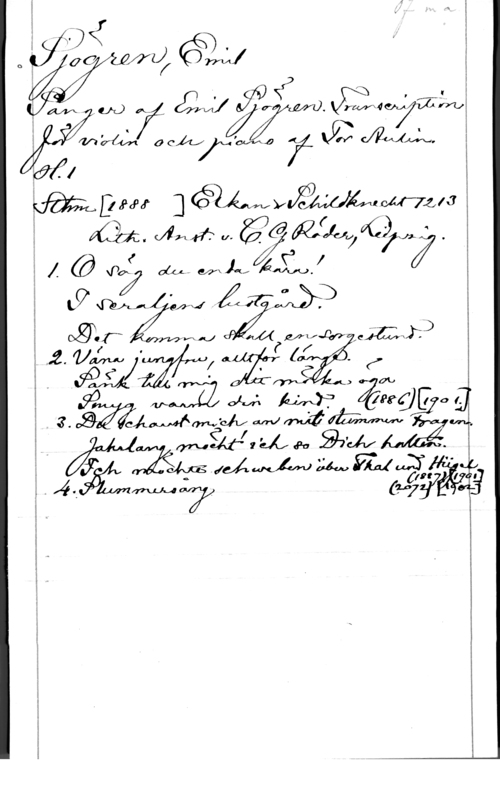 Sjögren, Emil
Sånger af Emil Sjögren. Transcription
för violin och piano af Tor Aulin.
H. 1
Sthm [1888 ] Elkan & Schildknecht 7213
Lith. Anst. v. C. G. Röder, Leipzig.
1. O säg du enda kära!
I seraljens lustgård.
Det komma skall en sorgestund.
2. Vána jungfru, alltför länge.
Sänk till mig ditt mörka öga
Smyg varm din kind (1886) [1901]
3. Du schaust mich an mit stummen Fragen.
Jahrlang möcht' ich so Dich halten.
Ich möchte schweben über Thal und Hügel
(1887) [1901]
4. Slummersång (2072) [1902]